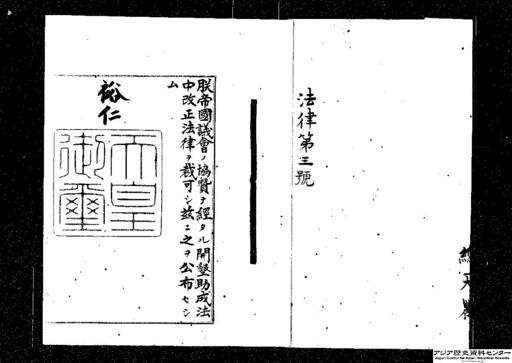 法律第三號
朕帝國議會ノ協贊ヲ經タル開墾助成法
中改正法律ヲ裁可シ玆ニ之ヲ公布セシ
ム
裕仁
天皇
御璽
アジア歴史資料センター
Japan Center for Asian Historical Records